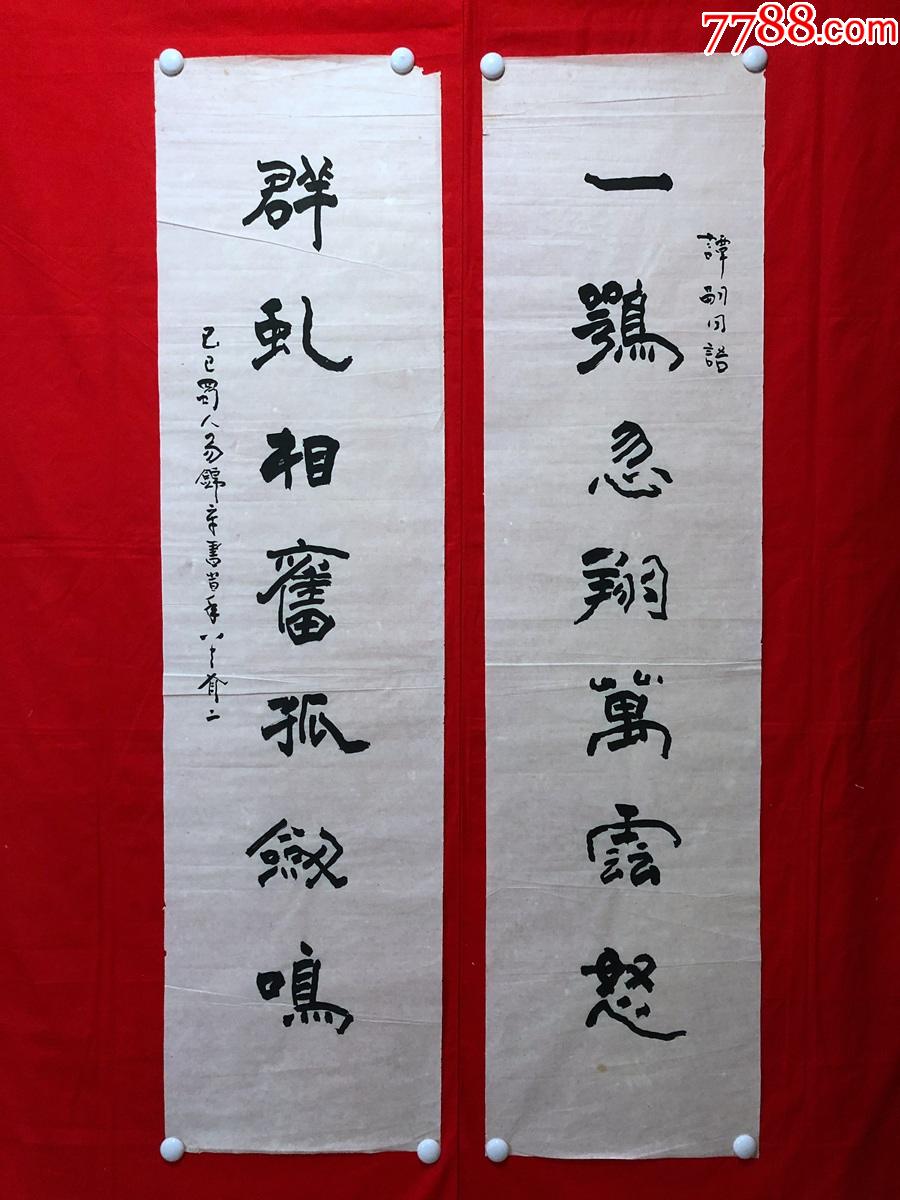 7788.com
一鶚忽翔萬雲怒
譚嗣同語
群虬相奮孤劍鳴
己巳蜀人易錦書旹年八十有二